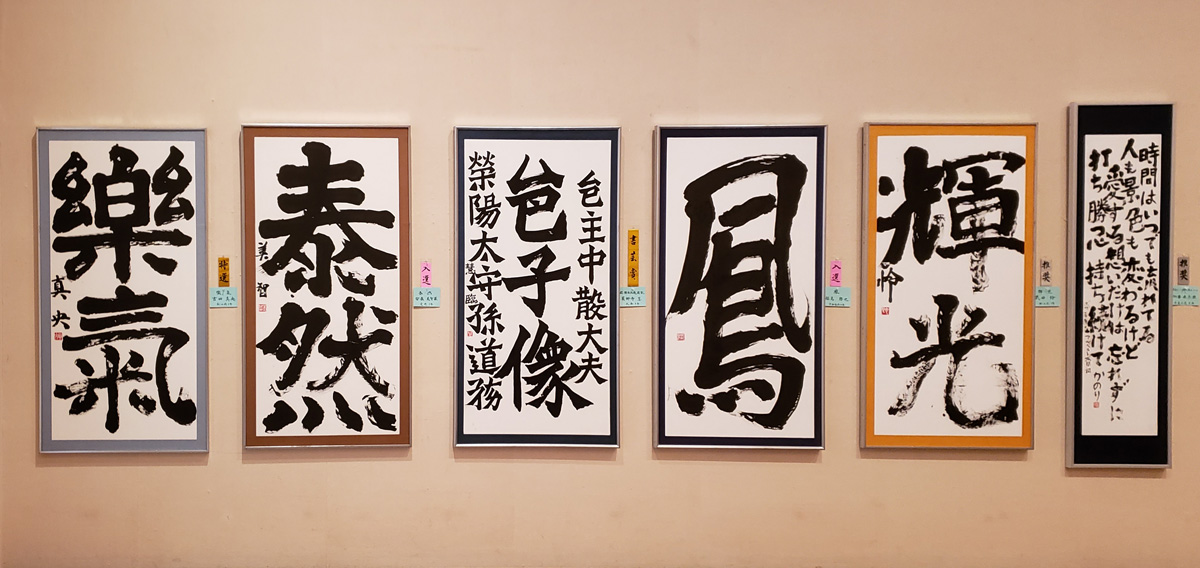 樂氣
真央
特選
泰然
美智
入選
邑主中散大夫
邑子像
榮陽太守孫道務
慧臨
書芸賞
鳳
入選
輝光
怜
推奨
時間はいつでも流れてる
人も景色も変わるけど
愛する想いだけは忘れずに
打ち勝つ心持ち続けて
かのり
推奨